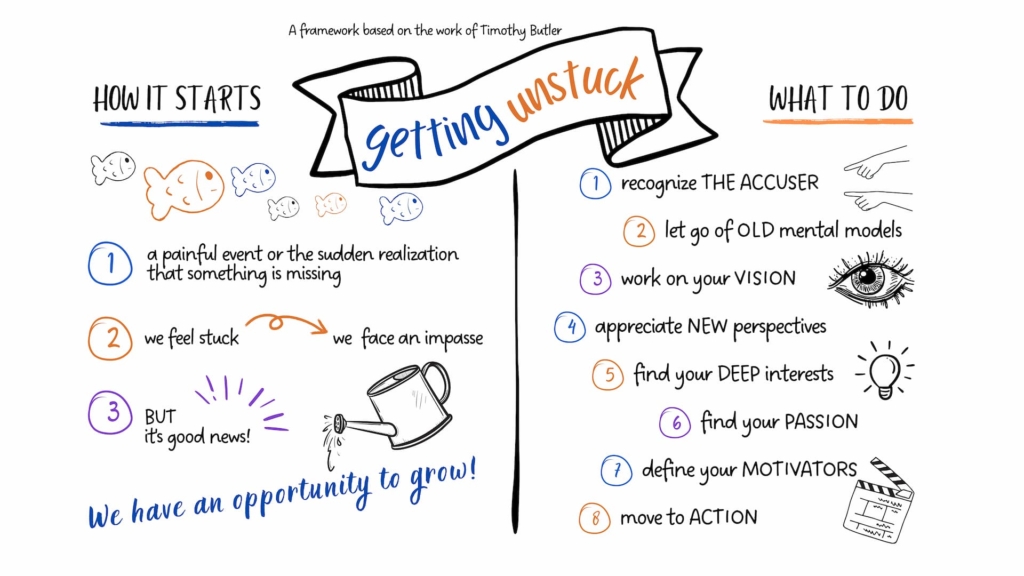 A framework based on the work of Timothy Butler
getting unstuck
HOW IT STARTS
1
a painful event or the sudden realization
that something is missing
2
we feel stuck
we face an impasse
3
BUT
it's good news!
We have an opportunity to grow!
WHAT TO DO
1 recognize THE ACCUSER
2 let go of OLD mental models
3 work on your VISION
4 appreciate NEW perspectives
5 find your DEEP interests
6 find your PASSION
7 define your MOTIVATORS
8 move to ACTION